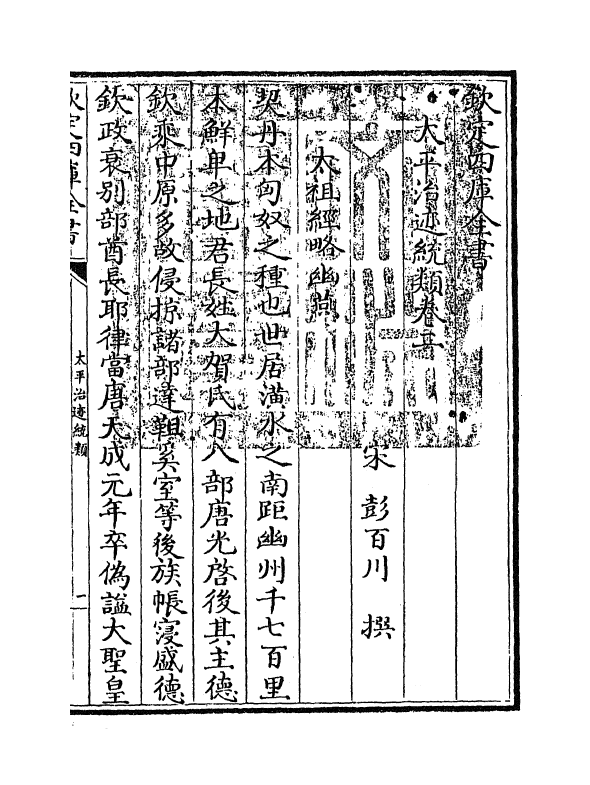 欽定四庫全書
太平治迹統類卷二
宋 彭百川 撰
太祖經略幽燕
契丹本匈奴之種也世居潢水之南距幽州千七百里
本鮮卑之地君長姓大賀氏有八部唐光啓後其主德
欽乘中原多故侵掠諸部達靼奚室等後族帳寖盛德
欽政衰別部酋長耶律當唐天成元年卒偽諡大聖皇
欽定四庫全書
太平治迹統類
一